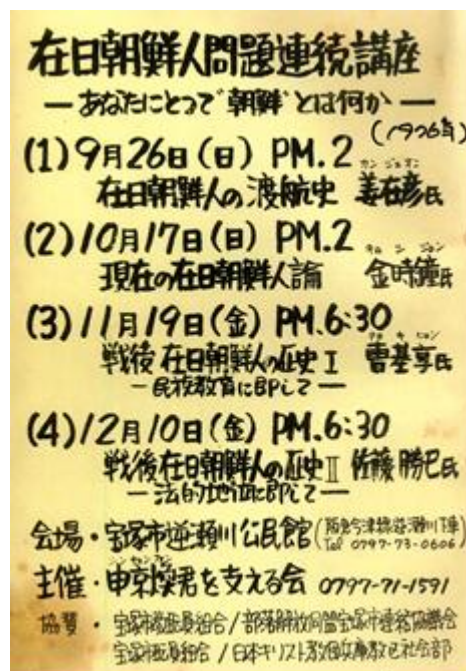 在日朝鮮人問題連続講座
— あなたにとって“朝鮮”とは何か —
(1976年)
(1) 9月26日(日) PM.2
在日朝鮮人の渡航史 姜在彦氏
(2) 10月17日(日) PM.2
現在の在日朝鮮人論 金時鐘氏
(3) 11月19日(金) PM.6:30
戦後在日朝鮮人の正史 I 曺基亨氏
— 民族教育に即して —
(4) 12月10日(金) PM.6:30
戦後在日朝鮮人の正史 II 佐藤勝巳氏
— 法的地位に即して —
会場・宝塚市逆瀬川公民館(阪急今津線逆瀬川下車
Tel 0797-73-0606)
主催・申京煥君を支える会 0797-71-1591
協賛・宝塚市職員組合/部落解放同盟宝塚市連絡協議会
宝塚市教員組合/日本キリスト教団兵庫教区社会部